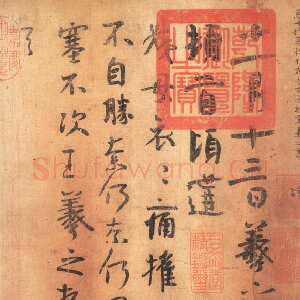 十一月十三日羲
頓首頃遘
姨母哀〻痛摧
不自勝奈何奈何
塞不次王羲之頓
Shufawang.C